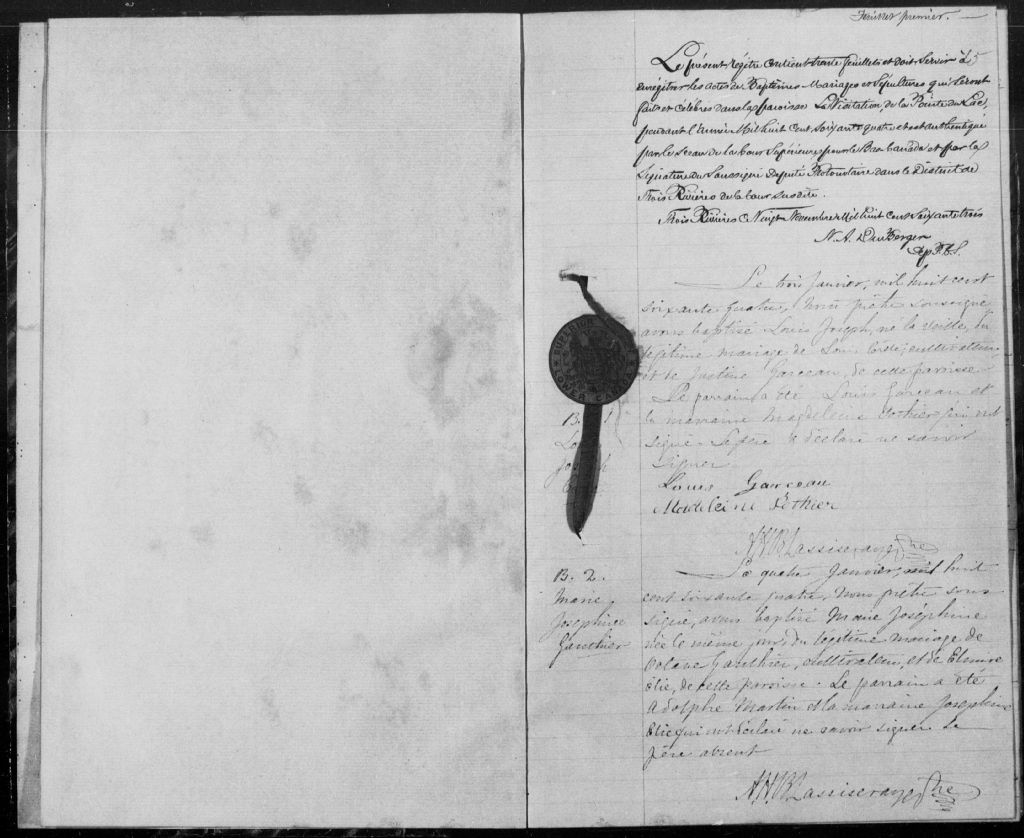 Feuillet premier. —
Le présent Régitre contient trente feuillets et doit servir à
enrégitrer les actes de Baptêmes Mariages et Sépultures qui seront
faits et célébrés dans la paroisse La Visitation de la Pointe du Lac,
pendant l'année Mil huit cent soixante quatre et est authentiqué
par le sceau de la Cour Supérieure pour le Bas Canada et par la
Signature du Soussigné Député Protonotaire dans le District de
Trois Rivières de la Cour susdite.
Trois Rivières Ce Vingt Novembre Mil huit cent Soixante trois
Dep P.C.S.
SUPERIOR
LOWER CANADA
Le trois Janvier, mil huit cent
soixante quatre, Nous prêtre soussigné
avons baptisé Louis Joseph, né la veille, du
légitime mariage de Louis cultivateur,
et de Justine Garceau, de cette paroisse
Le parrain a été Louis Garceau et
la marraine Magdeleine Pothier qui ont
signé. Le père a déclaré ne savoir
signer.
B. 1
Joseph
Louis Garceau
Madeleine Pothier
B. 2.
Marie
Joséphine
Gauthier
Le quatre Janvier, mil huit
cent soixante quatre, Nous prêtre sous
signé, avons baptisé Marie Joséphine
née le même jour, du légitime mariage de
Gauthier, cultivateur, et de Elmire
Elie, de cette paroisse. Le parrain a été
Adolphe Martin et la marraine Joséphine
Elie qui ont déclaré ne savoir signer. Le
père absent